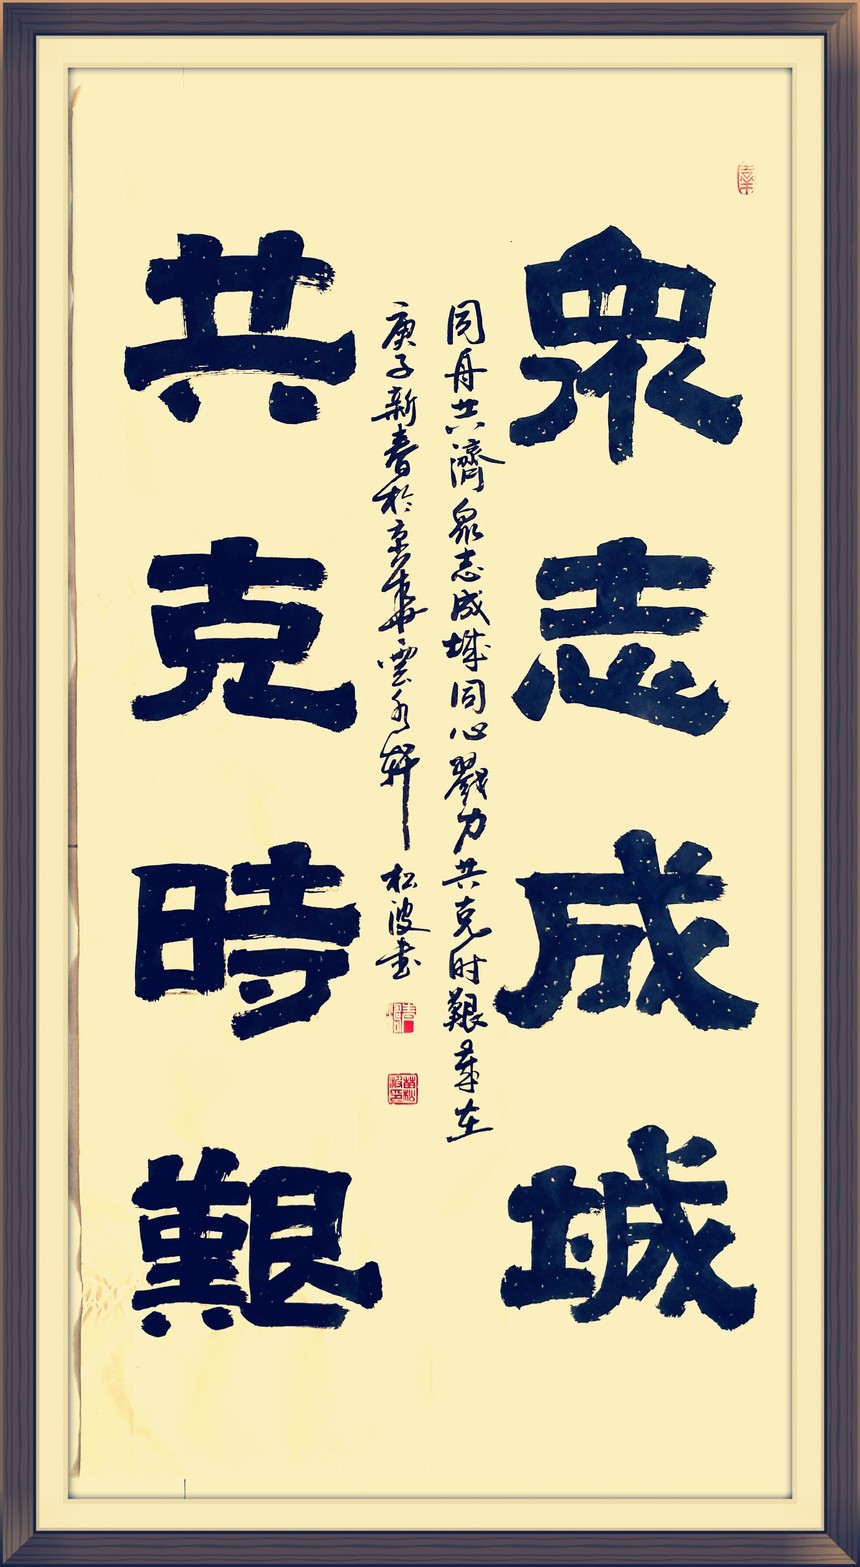 眾志成城
同舟共濟眾志成城同心戮力共克时艱歲在
庚子新春於京華雲水軒松波书
共克時艱